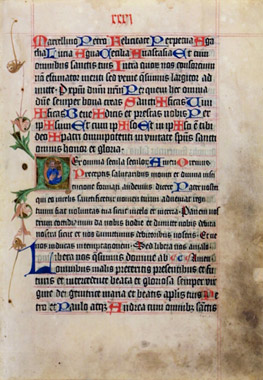 Marcellino Petro Felicitate Perpetua Aga
tha Lucia Agna Cecilia Anastasia Et cum
omnibus sanctis tuis Intra quos nos consorcium
nō estimator meriti sed venie q̄sumus largitor ad
mitte. Per xp̄m dn̄m nr̄m Per quem hec omnia
dn̄e semper bona creas Sancti✠ficas Viui
✠ficas Bene✠dicis et prestas nobis Per
ip✠sum Et cum ip✠so Et in ip✠so est tibi
deo patri omnipotenti in vnitate sp̄us sancti
omnis honor et gloria.
Per omnia secula seculor Amen Oremus
Preceptis salutaribus moniti et diuina insti
tucione formati audemus dicere Pater noster
qui es in celis sanctificetur nomen tuum adueniat reg
tuum fiat voluntas tua sicut in celo et in terra Panem nos
trum cotidianum da nobis hodie et dimitte nobis debita
nostra sicut et nos dimittimus debitoribus nostris Et ne
nos inducas in temptationem Sed libera nos a malo
Libera nos q̄sumus domine ab Amen
omnibus malis preteritis presentibus et fu
turis et intercedente beata et gloriosa semper vir
gine dei genitrice maria et beatis ap̄lis tuis Pe
tro et Paulo atq; Andrea cum omnibus sanctis